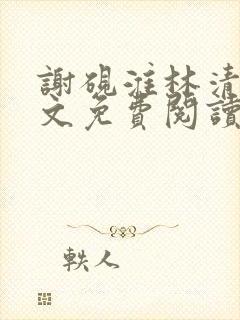 謝硯淮林清
文免費閱讀
軼人